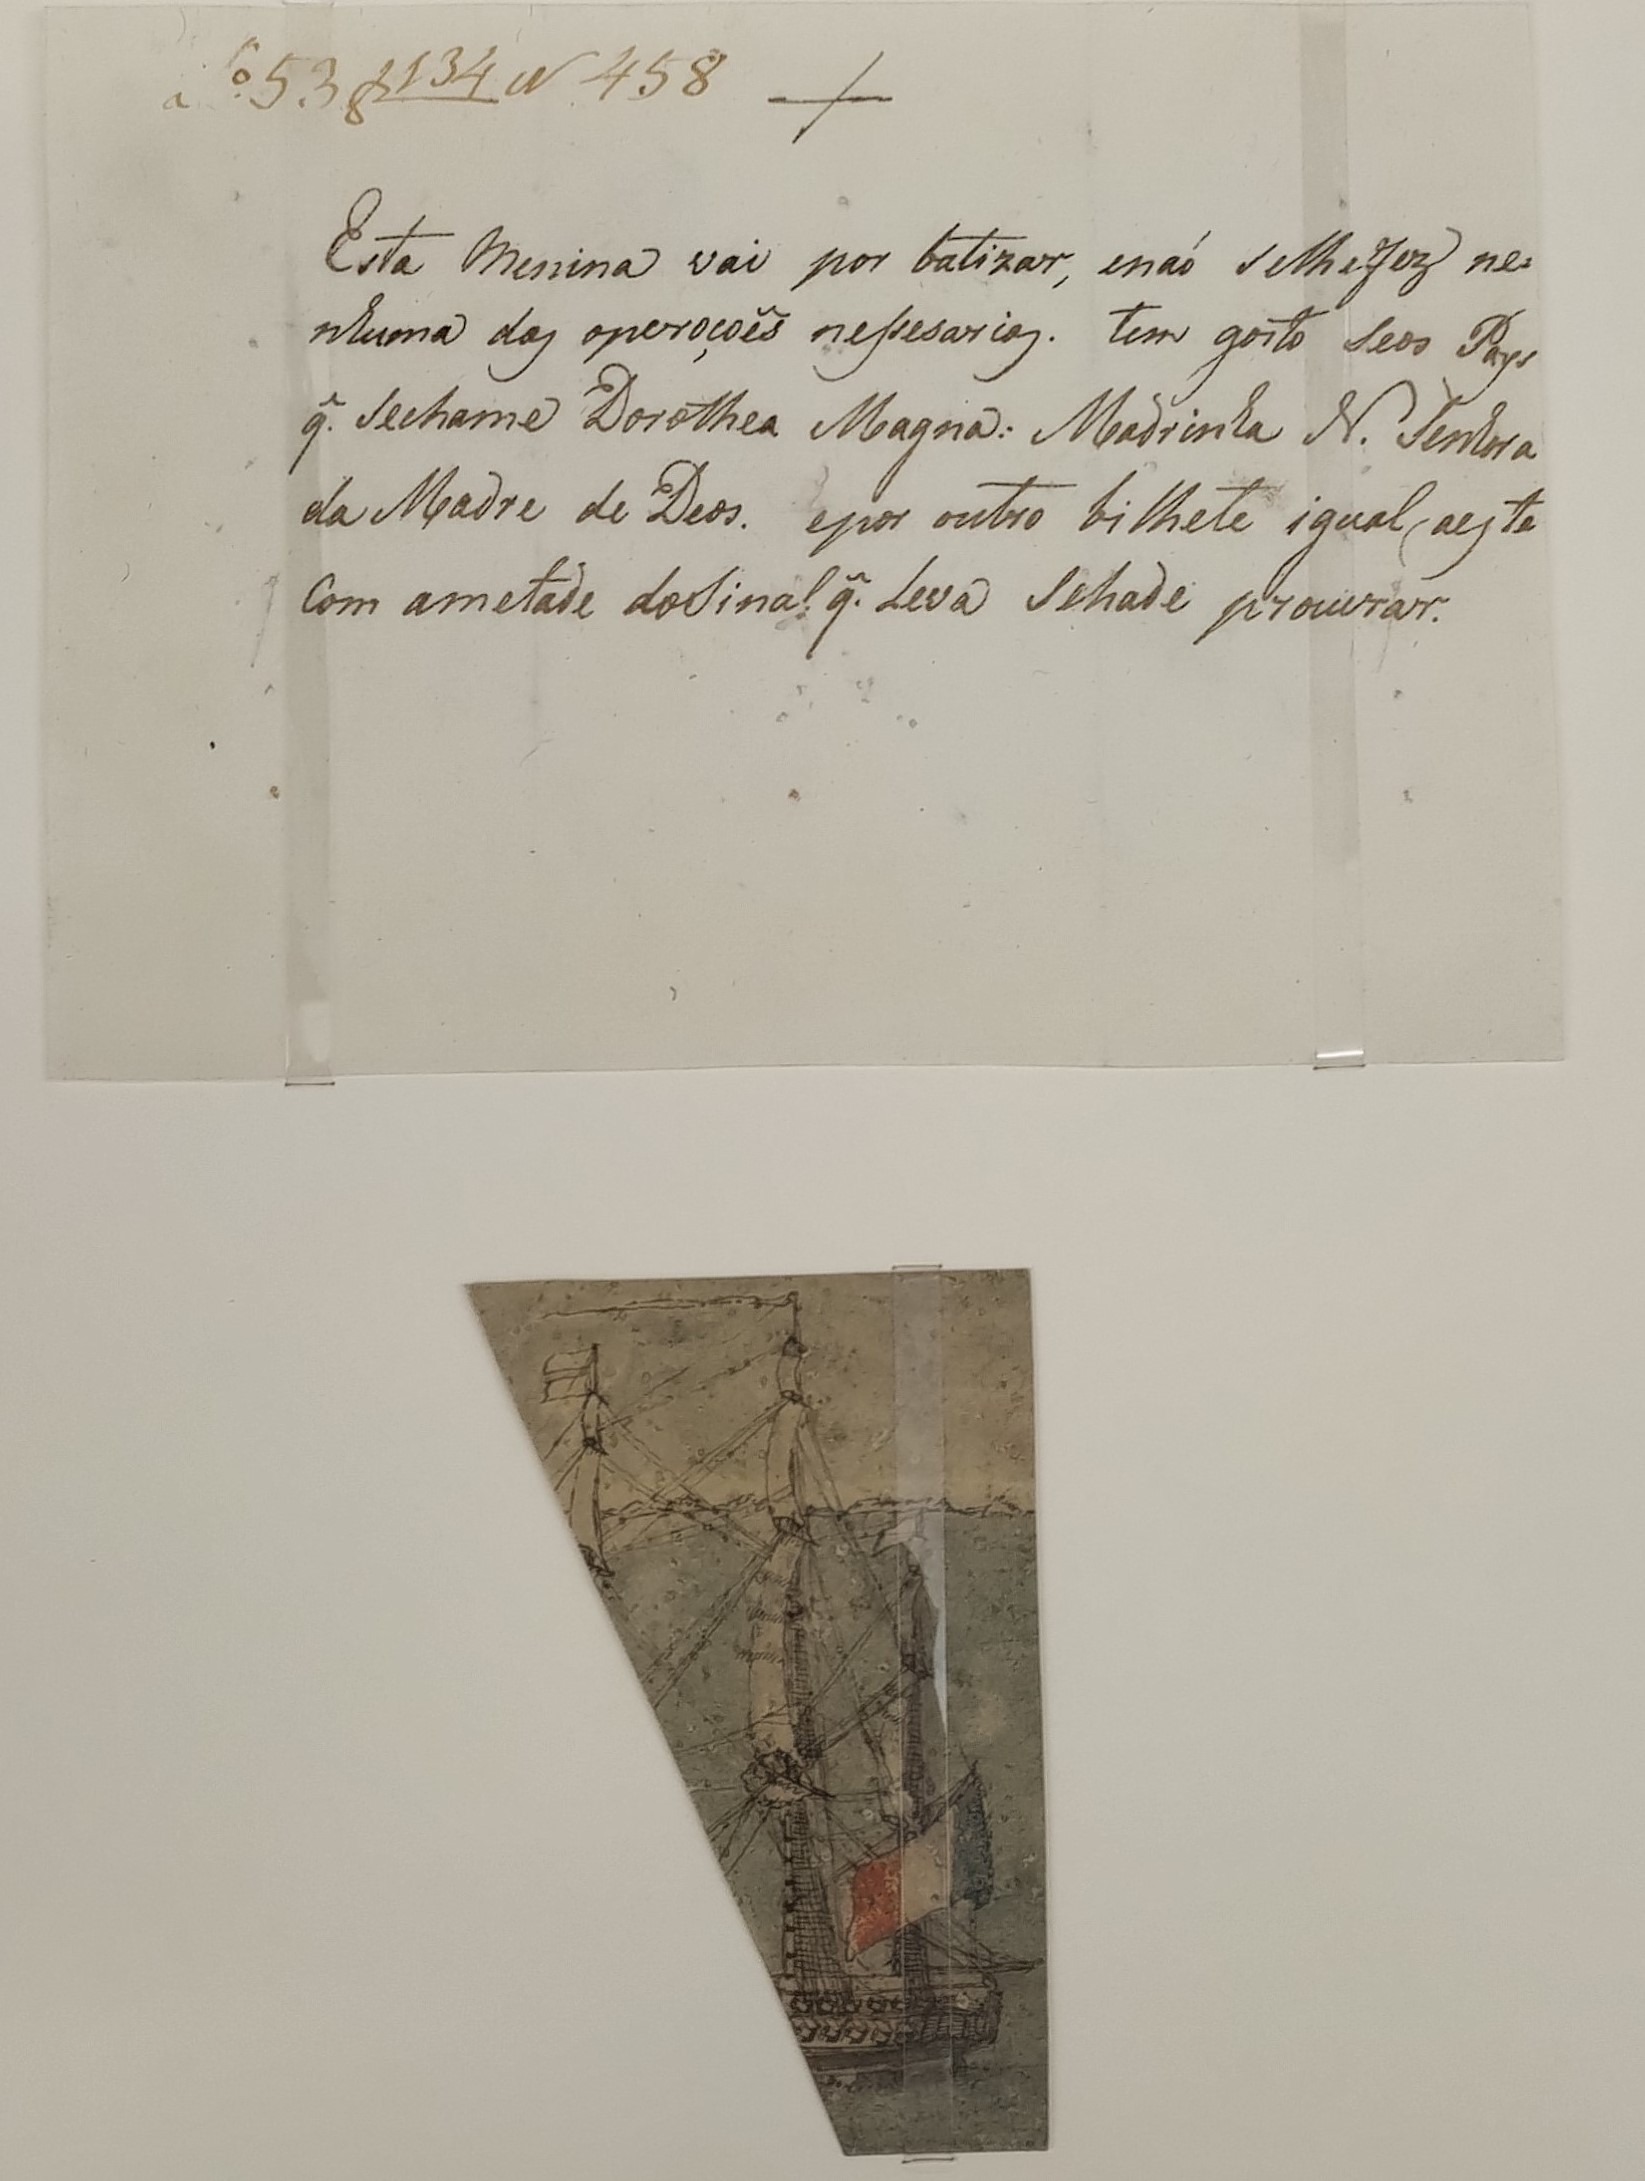 aº 53 f 134 N 458
Esta Menina vai por batizar, enaó selhefez ne=
nhuma das operaçoẽs nessesarias. tem gosto seos Pays
q̃. sechame Dorothea Magna: Madrinha N. Senhora
da Madre de Deos. epor outro bilhete igual, aeste
Com ametade dosinal q̃. Leva sehade procurar.